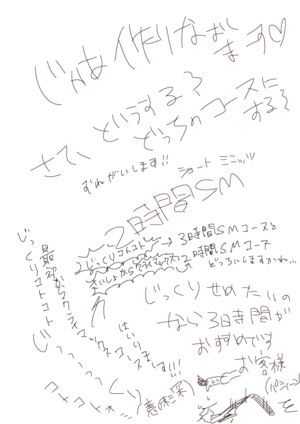 じゃあ作りなおします♡
さて、どうする?
どっちのコースにする?
おねがいします!!
ショート ミニッツ
2時間SM
2じっくりコトコト
→3時間SMコースと
さいしょからクライマックス
2時間SMコース
どっちにしますかね…
じっくりせめたいの
なら3時間が
おすすめです
お客様
を
最初からクライマックスコースで
はい
じっくりコトコト
じっっっっくり
コトコト…
(意味深)